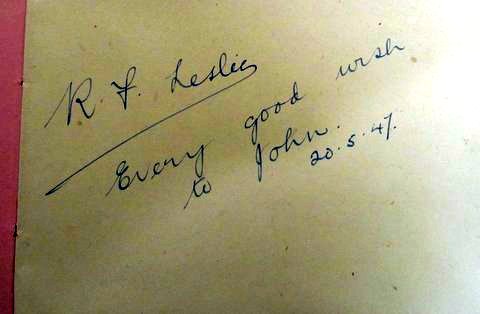 R. F. Leslie
Every good wish
to John.
20.5.47.